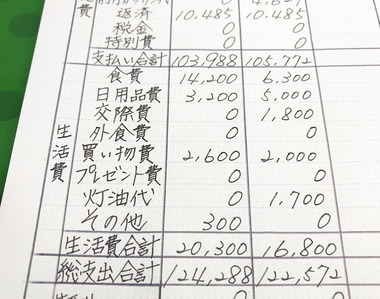 費
返済 10,485 10,485
税金 0 0
特別費 0 0
支払い合計 103,988 105,772
食費 14,200 6,300
日用品費 3,200 5,000
交際費 0 1,800
生活費
外食費 0 0
買い物費 2,600 2,000
プレゼント費 0 0
灯油代 0 1,700
その他 300 0
生活費合計 20,300 16,800
総支出合計 124,288 122,572